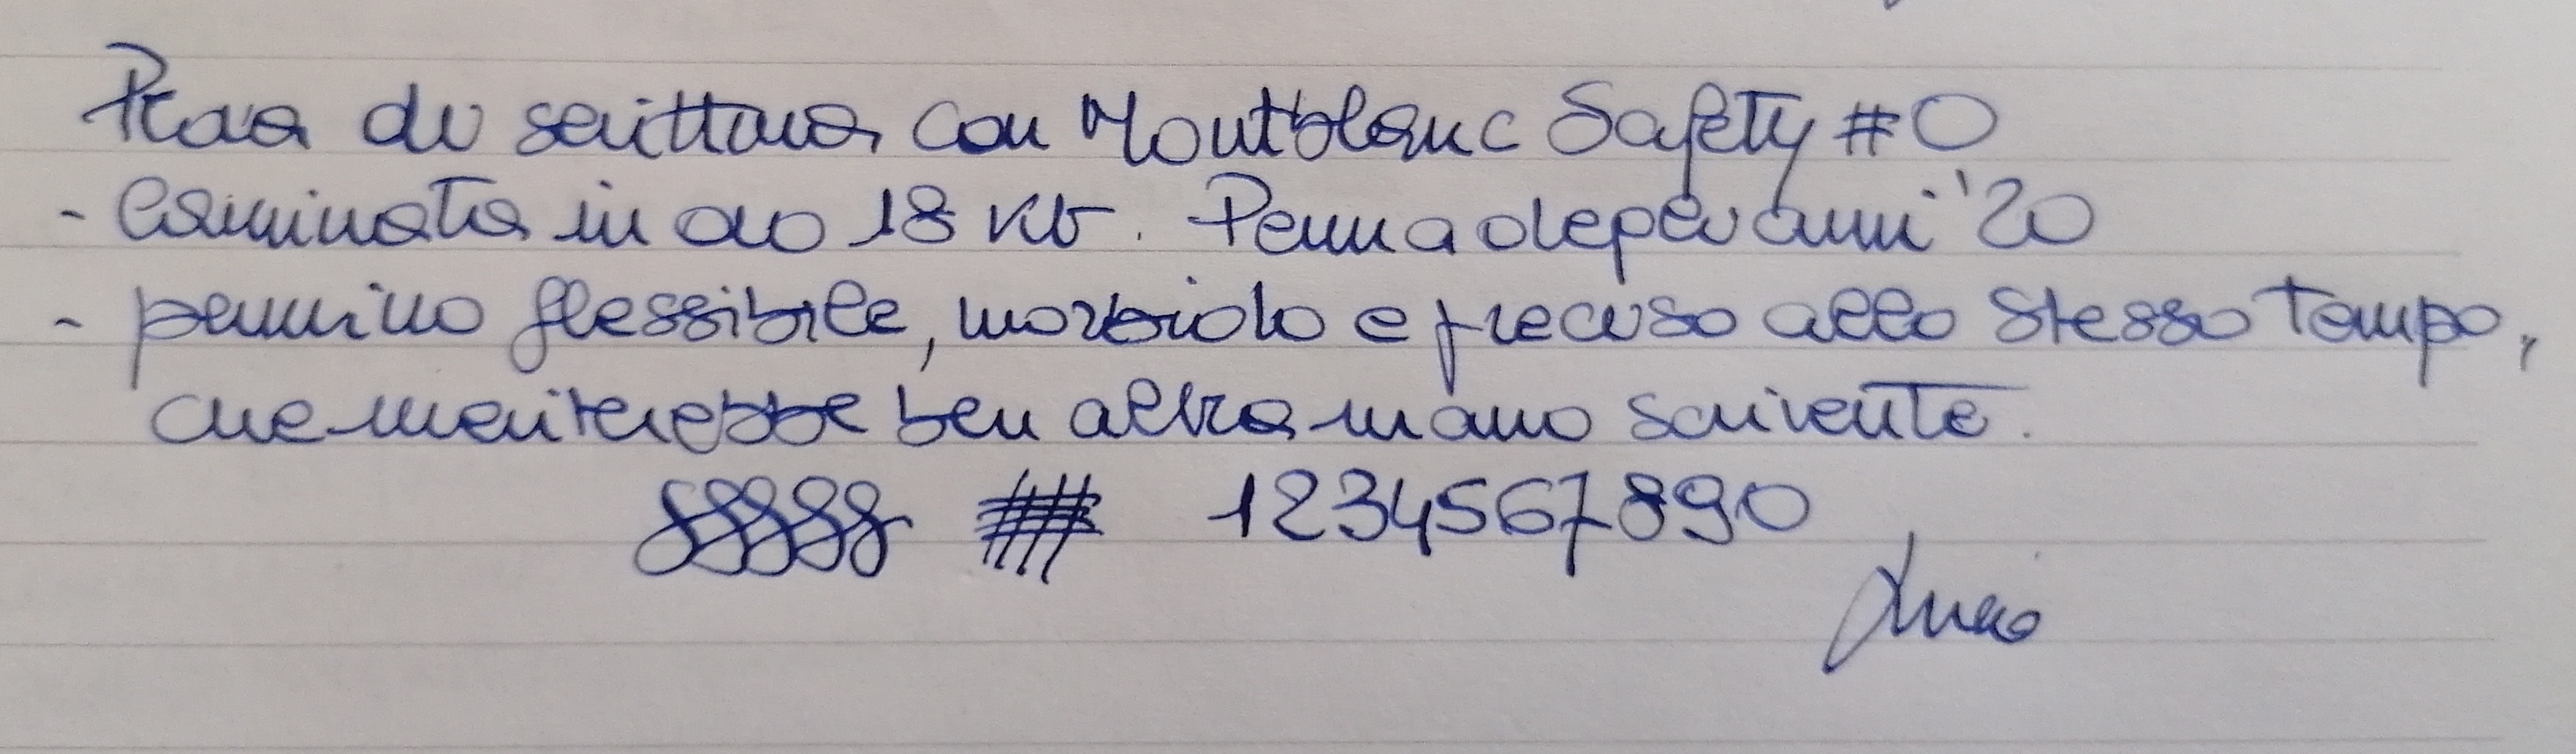 Prova di scrittura con Montblanc Safety #0
- Laminata in oro 18 Kt. Penna degli anni '20
- pennino flessibile, morbido e preciso allo stesso tempo,
che meriterebbe ben altra mano scrivente.
1234567890